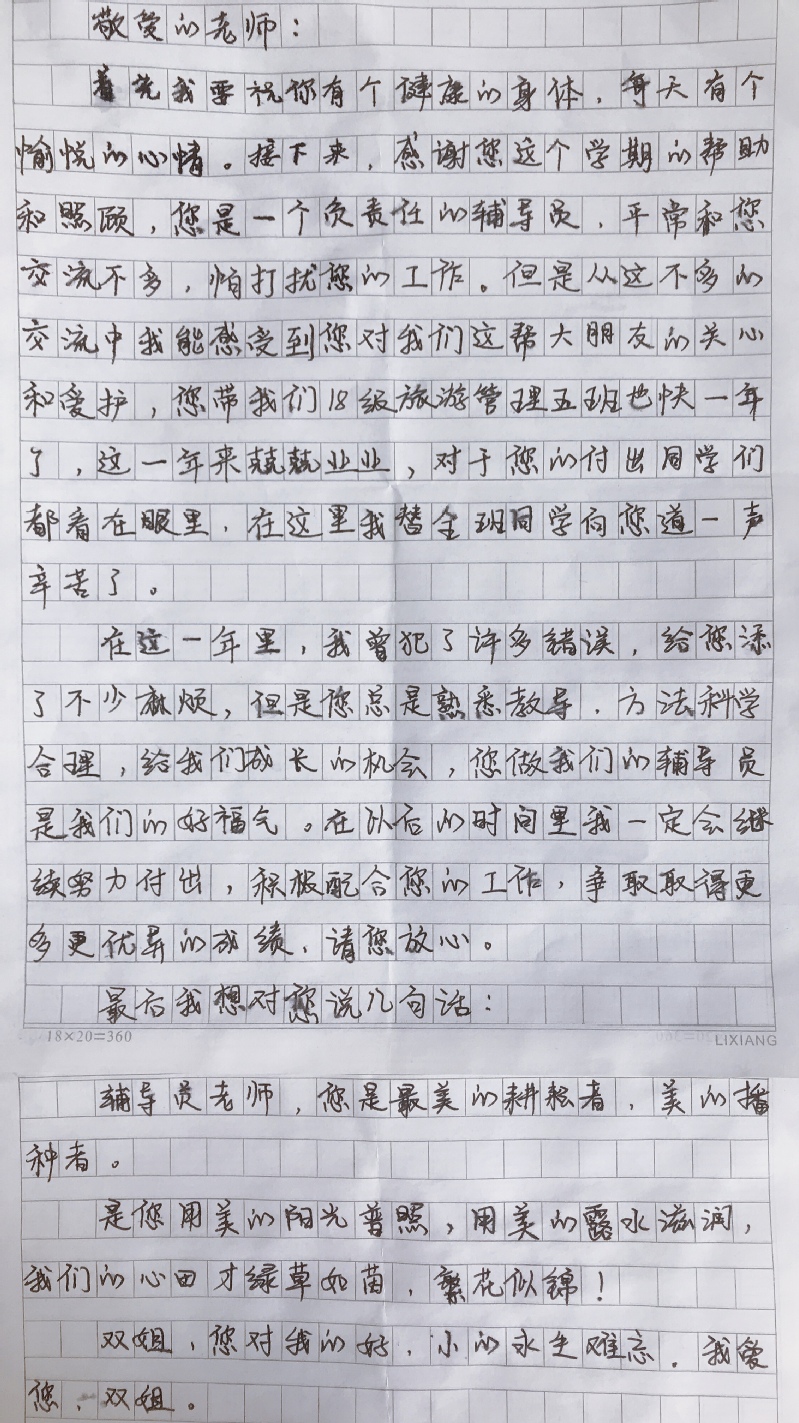 敬爱的老师：
首先我要祝你有个健康的身体，每天有个
愉悦的心情。接下来，感谢您这个学期的帮助
和照顾，您是一个负责任的辅导员，平常和您
交流不多，怕打扰您的工作。但是从这不多的
交流中我能感受到您对我们这帮大朋友的关心
和爱护，您带我们18级旅游管理五班也快一年
了，这一年来兢兢业业，对于您的付出同学们
都看在眼里，在这里我替全班同学向您道一声
辛苦了。
在这一年里，我曾犯了许多错误，给您添
了不少麻烦，但是您总是熟悉教导，方法科学
合理，给我们成长的机会，您做我们的辅导员
是我们的好福气。在以后的时间里我一定会继
续努力付出，积极配合您的工作，争取取得更
多更优异的成绩，请您放心。
最后我想对您说几句话：
18×20=360
LIXIANG
辅导员老师，您是最美的耕耘者，美的播
种者。
是您用美的阳光普照，用美的露水滋润，
我们的心田才绿草如茵，繁花似锦！
双姐，您对我的好，小的永生难忘。我爱
您，双姐。